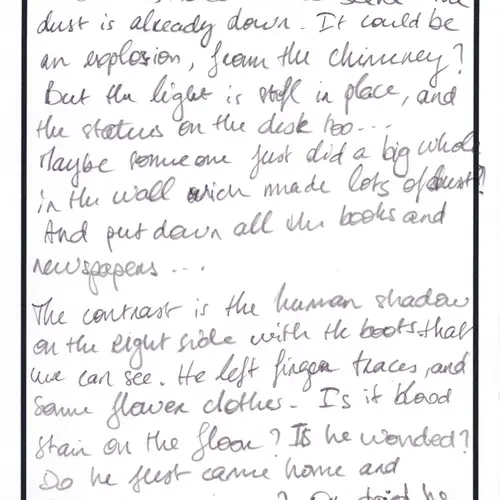 dust is already down. It could be
an explosion, from the chimney?
But the light is still in place, and
the statues on the desk too...
Maybe someone just did a big whole
in the wall wich made lots of dust?
And put down all the books and
newspapers...
The contrast is the human shadow
on the right side with the boots that
we can see. He left finger traces, and
some flower clothes. Is it blood
stain on the floor? Is he wonded?
Do he just came home and